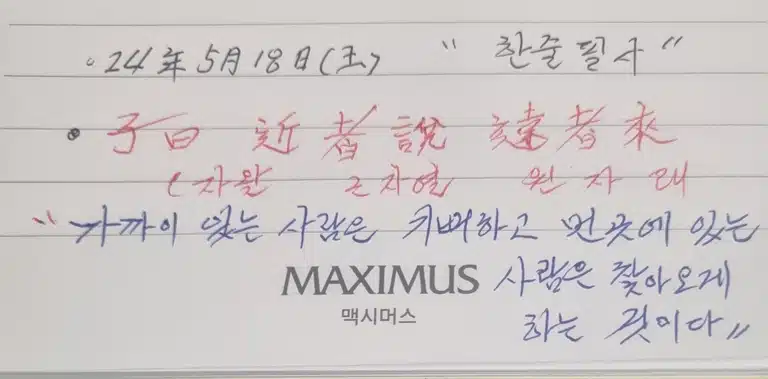 24年 5月 18日(土) "한줄필사"
子曰 近者說 遠者來
(자왈 근자열 원자래
"가까이 있는 사람은 기뻐하고 먼곳에 있는
MAXIMUS 사람은 찾아오게
맥시머스 하는 것이다"